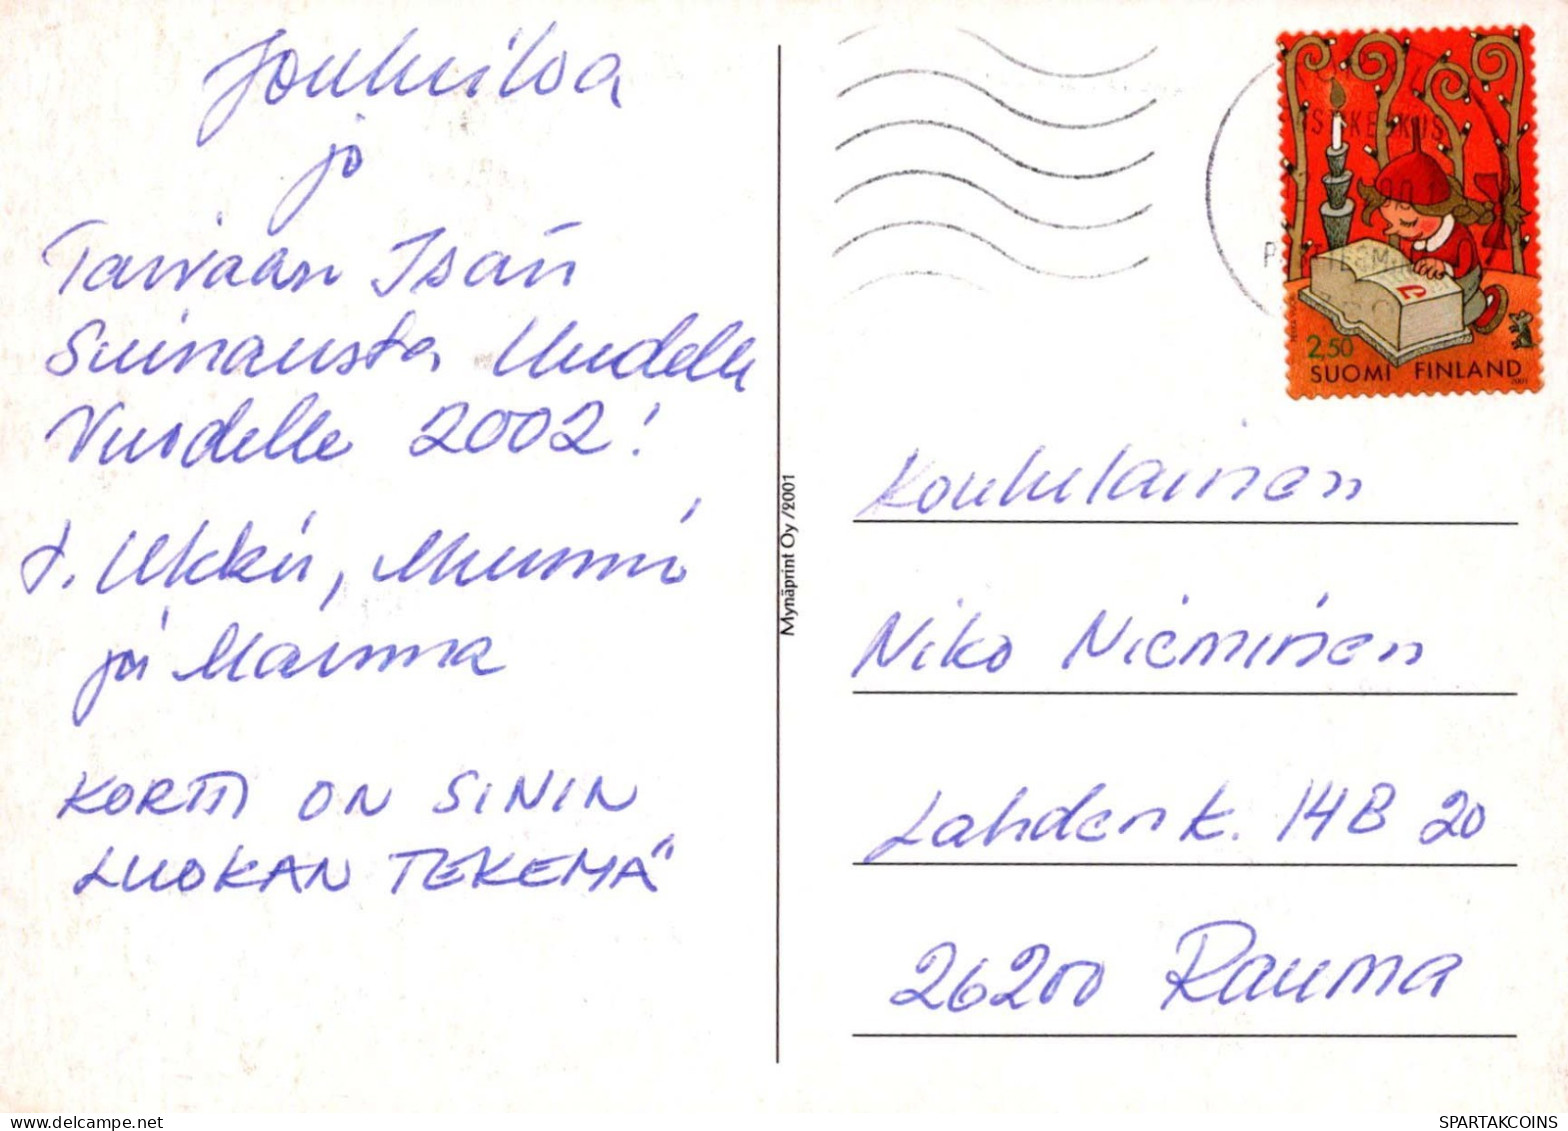 Jouluiloa
ja
Taivaan Isän
Siunausta Uudelle
Vuodelle 2002!
t. Ukki, Mummi
ja Marima
KORTTI ON SININ
LUOKAN TEKEMÄ
Mynäprint Oy /2001
2.50
SUOMI FINLAND
2001
Koululainen
Niko Nieminen
Lahdenk. 14B 20
26200 Rauma
SPARTAKCOINS